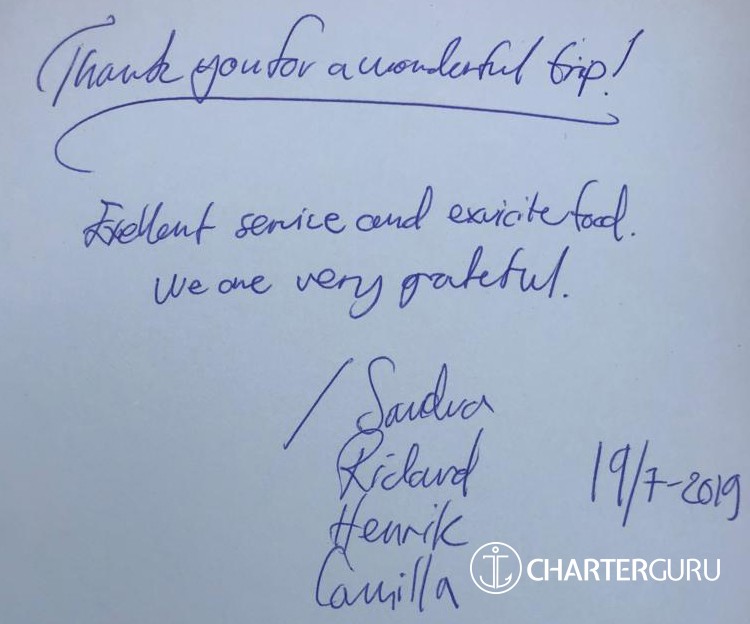 Thank you for a wonderful trip!
Exellent service and exvicite food.
We are very grateful.
/ Sandra
Rickard
Henrik
Camilla
19/7-2019
CHARTERGURU